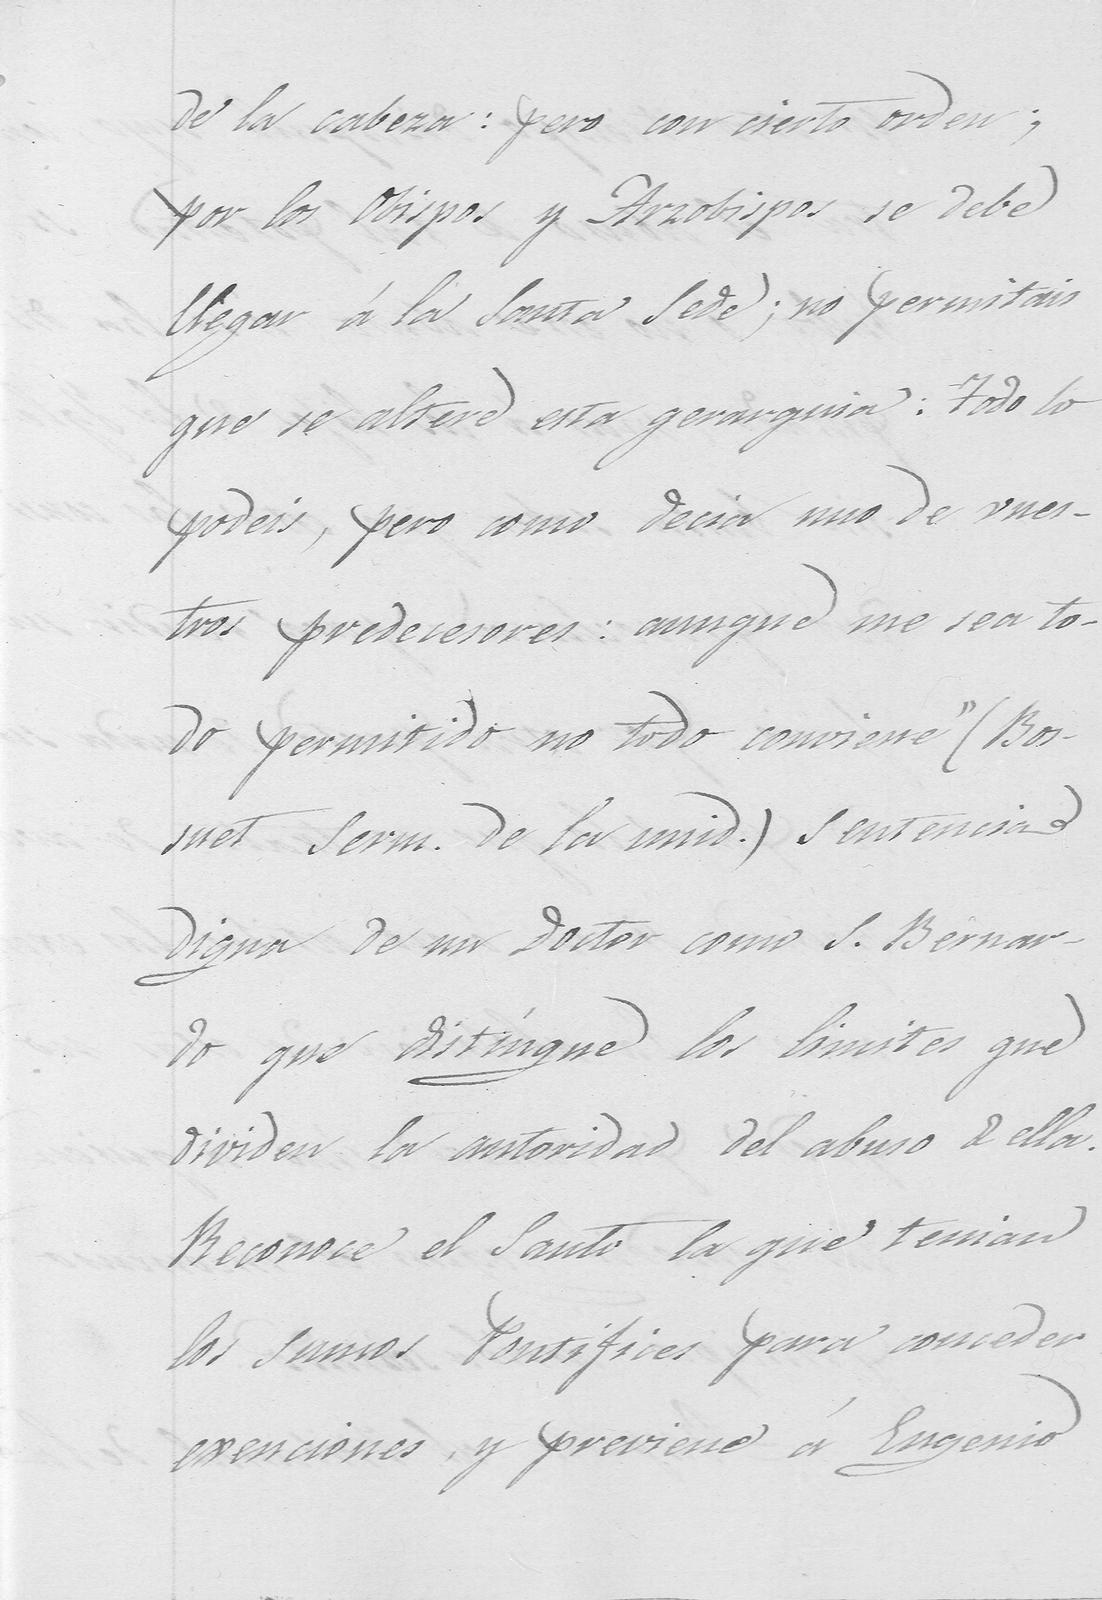 de la cabeza: pero con cierto orden;
por los Obispos y Arzobispos se debe
llegar á la Santa Sede; no permitais
que se altere esta gerarquia: Todo lo
podeis, pero como decia uno de vues-
tros predecesores: aunque me sea to-
do permitido no todo conviene" (Bos-
suet Serm. de la unid.) Sentencia
digna de un Doctor como S. Bernar-
do que distingue los limites que
dividen la autoridad del abuso d ella.
Reconoce el Santo la que tenian
los sumos Pontifices para conceder
exenciones, y previene á Eugenio